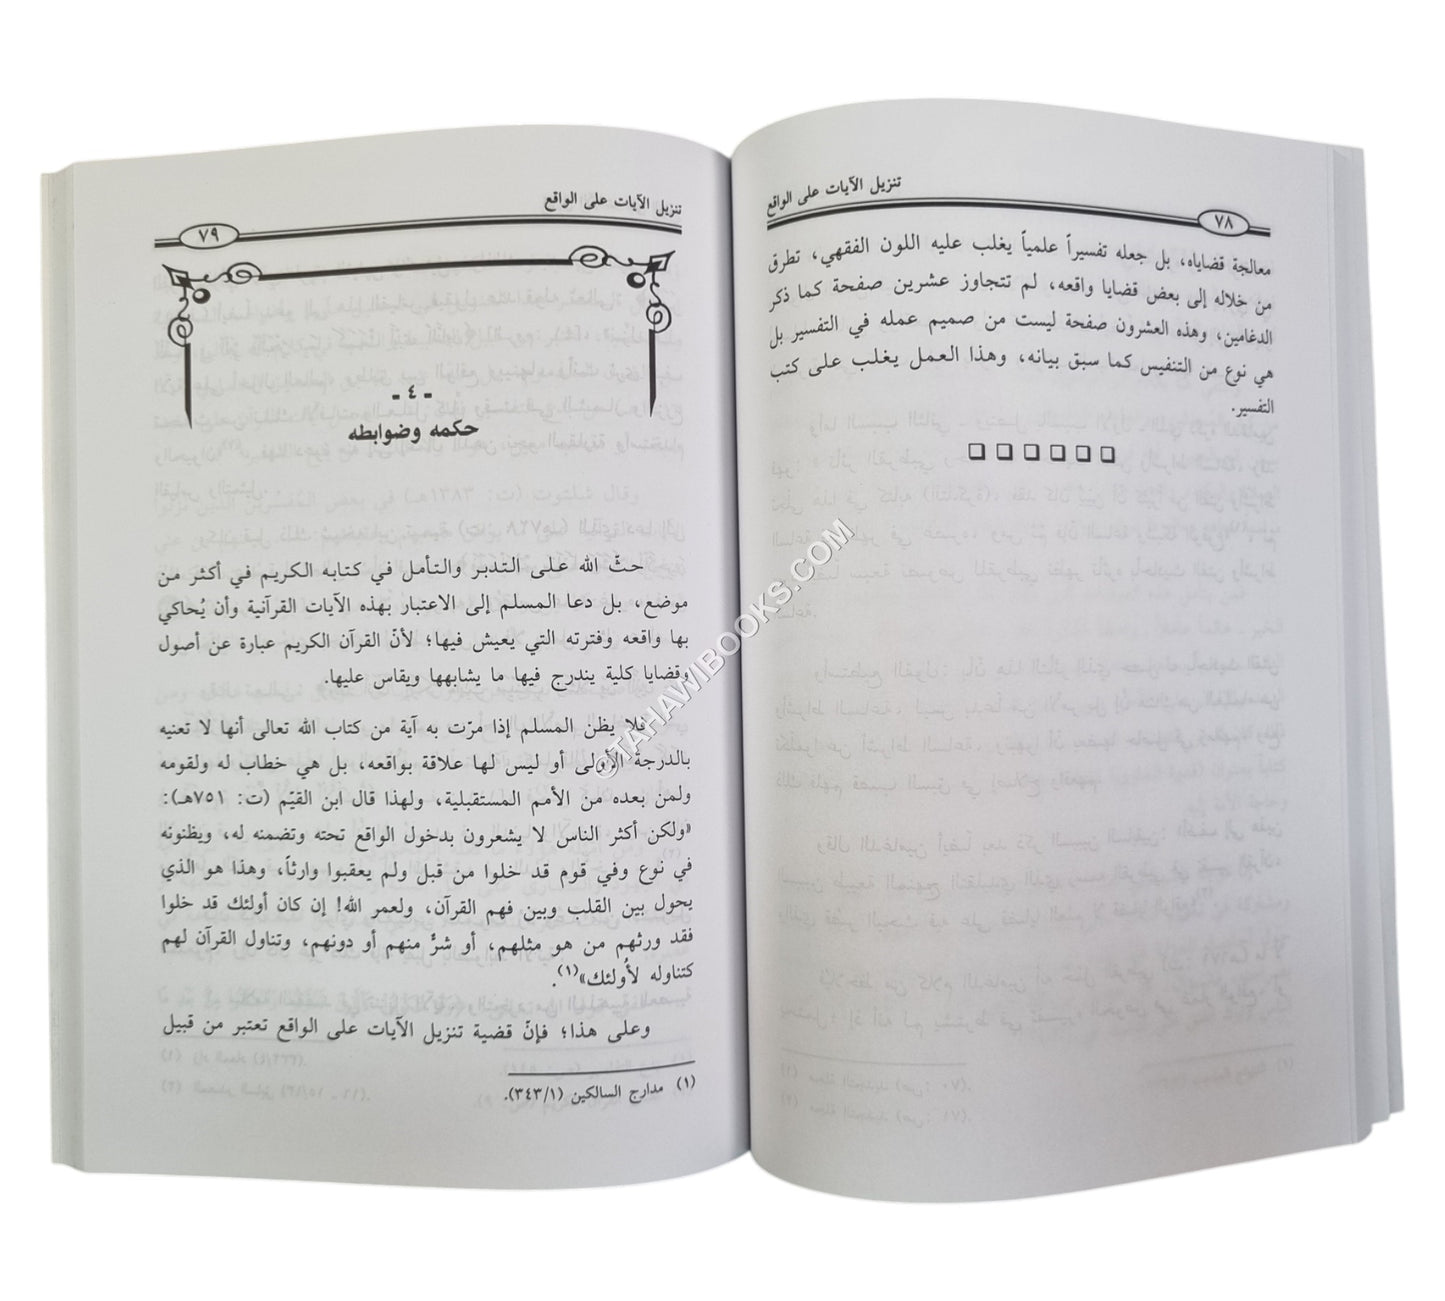 تنزيل الآيات على الواقع
٧٨
معالجة قضاياه، بل جعله تفسيراً علمياً يغلب عليه اللون الفقهي، تطرق
من خلاله إلى بعض قضايا واقعه، لم تتجاوز عشرين صفحة كما ذكر
الدغامين، وهذه العشرون صفحة ليست من صميم عمله في التفسير بل
هي نوع من التنفيس كما سبق بيانه، وهذا العمل يغلب على كتب
التفسير.
تنزيل الآيات على الواقع
٧٩
- ٤ -
حكمه وضوابطه
حثّ الله على التدبر والتأمل في كتابه الكريم في أكثر من
موضع، بل دعا المسلم إلى الاعتبار بهذه الآيات القرآنية وأن يُحاكي
بها واقعه وفترته التي يعيش فيها؛ لأنّ القرآن الكريم عبارة عن أصول
وقضايا كلية يندرج فيها ما يشابهها ويقاس عليها.
فلا يظن المسلم إذا مرّت به آية من كتاب الله تعالى أنها لا تعنيه
بالدرجة الأولى أو ليس لها علاقة بواقعه، بل هي خطاب له ولقومه
ولمن بعده من الأمم المستقبلية، ولهذا قال ابن القيّم (ت: ٧٥١هـ):
«ولكن أكثر الناس لا يشعرون بدخول الواقع تحته وتضمنه له، ويظنونه
في نوع وفي قوم قد خلوا من قبل ولم يعقبوا وارثاً، وهذا هو الذي
يحول بين القلب وبين فهم القرآن، ولعمر الله! إن كان أولئك قد خلوا
فقد ورثهم من هو مثلهم، أو شرٌّ منهم أو دونهم، وتناول القرآن لهم
كتناوله لأُولئك»(١).
وعلى هذا؛ فإنّ قضية تنزيل الآيات على الواقع تعتبر من قبيل
(١) مدارج السالكين (٣٤٣/١).
©TAHAWIBOOKS.COM